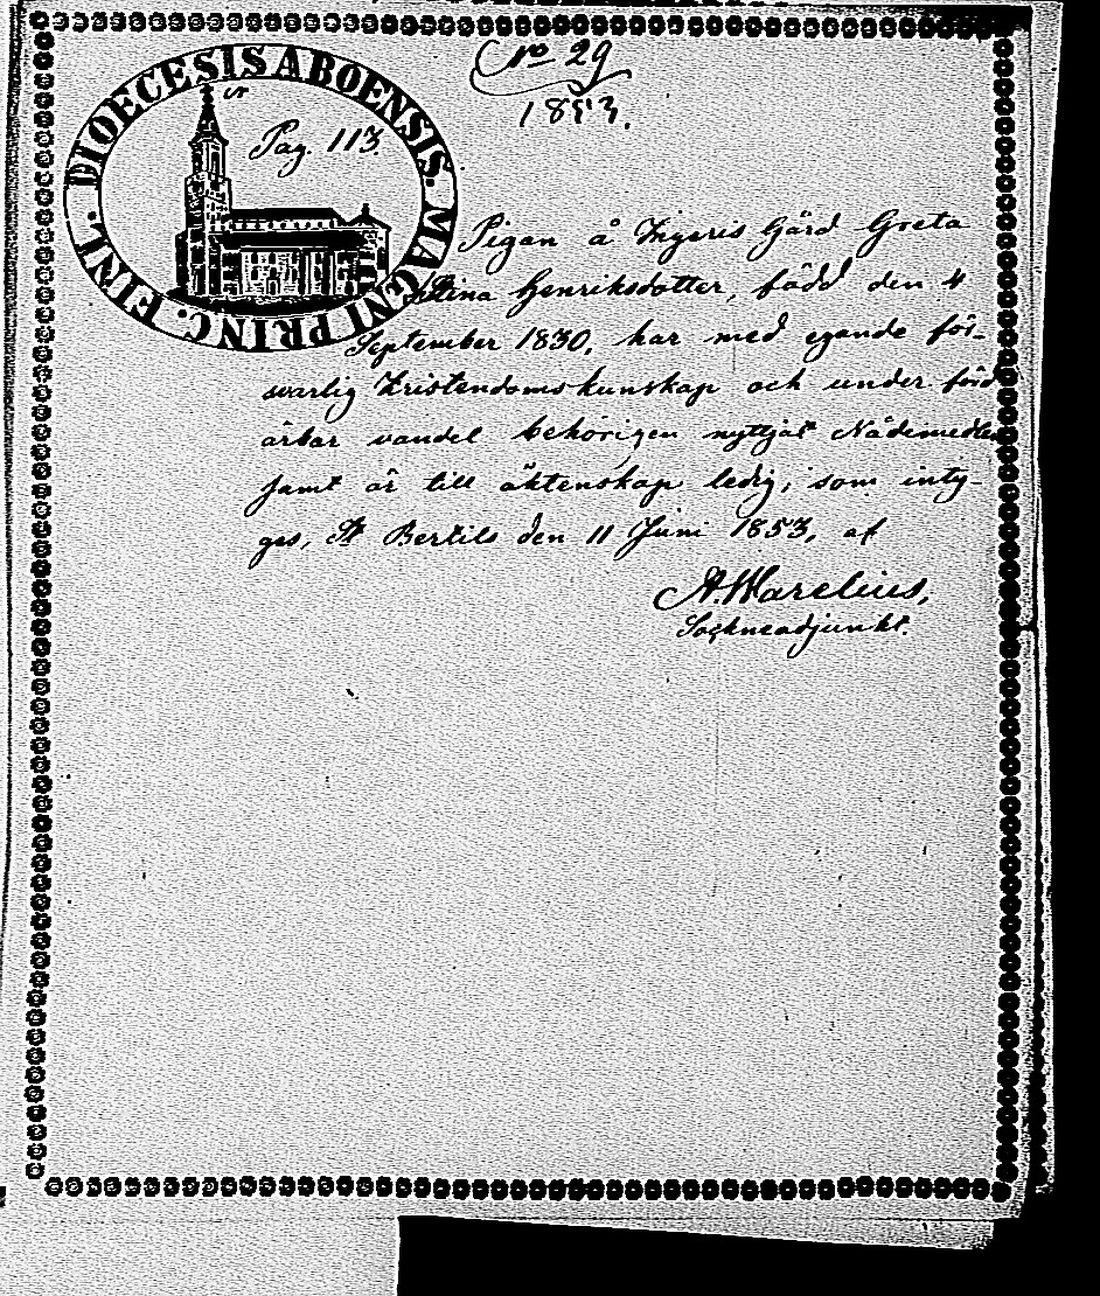 DIOECESIS ABOENSIS. MAGNI PRINC. FINL.
No 29
1853.
Pag. 113.
Pigan å Ingeris Gård Greta
Stina Henriksdotter, född den 4
September 1830, har med egande för-
svarlig Kristendomskunskap och under förd
ärbar vandel behörigen nyttjat Nådemedlen
samt är till äktenskap ledig; som inty-
gas, St Bertils den 11 Juni 1853, af
A. Warelius,
Sockneadjunkt.